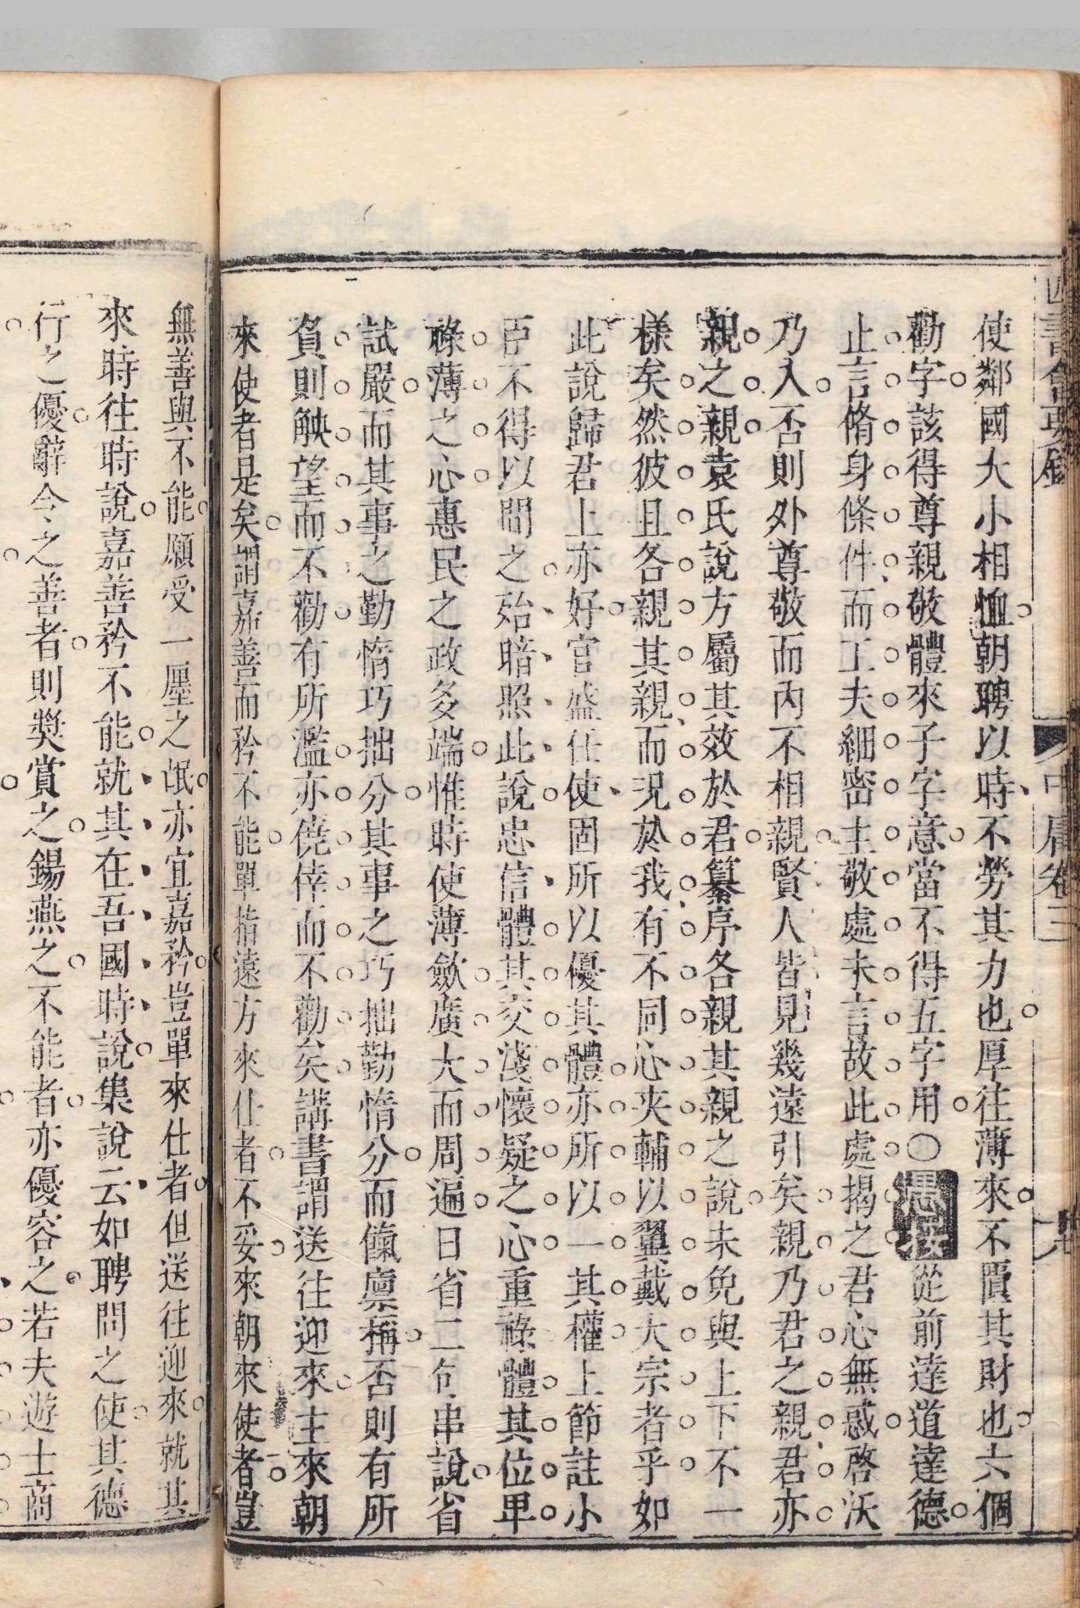 中庸卷三
使鄰國大小相恤朝聘以時不勞其力也厚往薄來不匱其財也六個
勸字該得尊親敬體來子字意當不得五字用○愚按從前達道達德
止言脩身條件而工夫細密主敬處未言故此處揭之君心無惑啓沃
乃入否則外尊敬而內不相親賢人皆見幾遠引矣親乃君之親君亦
親之親袁氏說方屬其效於君纂序各親其親之說未免與上下不一
樣矣然彼且各親其親而現於我有不同心夾輔以翼戴大宗者乎如
此說歸君上亦好官盛任使固所以優其體亦所以一其權上節註小
臣不得以間之殆暗照此說忠信體其交淺懷疑之心重祿體其位卑
祿薄之心惠民之政多端惟時使薄斂廣大而周遍日省二句串說省
試嚴而其事之勤惰巧拙分其事之巧拙勤惰分而餼廩稱否則有所
負則觖望而不勸有所濫亦僥倖而不勸矣講書謂送往迎來主來朝
來使者是矣謂嘉善而矜不能單指遠方來仕者不妥來朝來使者豈
無善與不能願受一廛之氓亦宜嘉矜豈單來仕者但送往迎來就其
來時往時說嘉善矜不能就其在吾國時說集說云如聘問之使其德
行之優辭令之善者則獎賞之錫燕之不能者亦優容之若夫遊士商